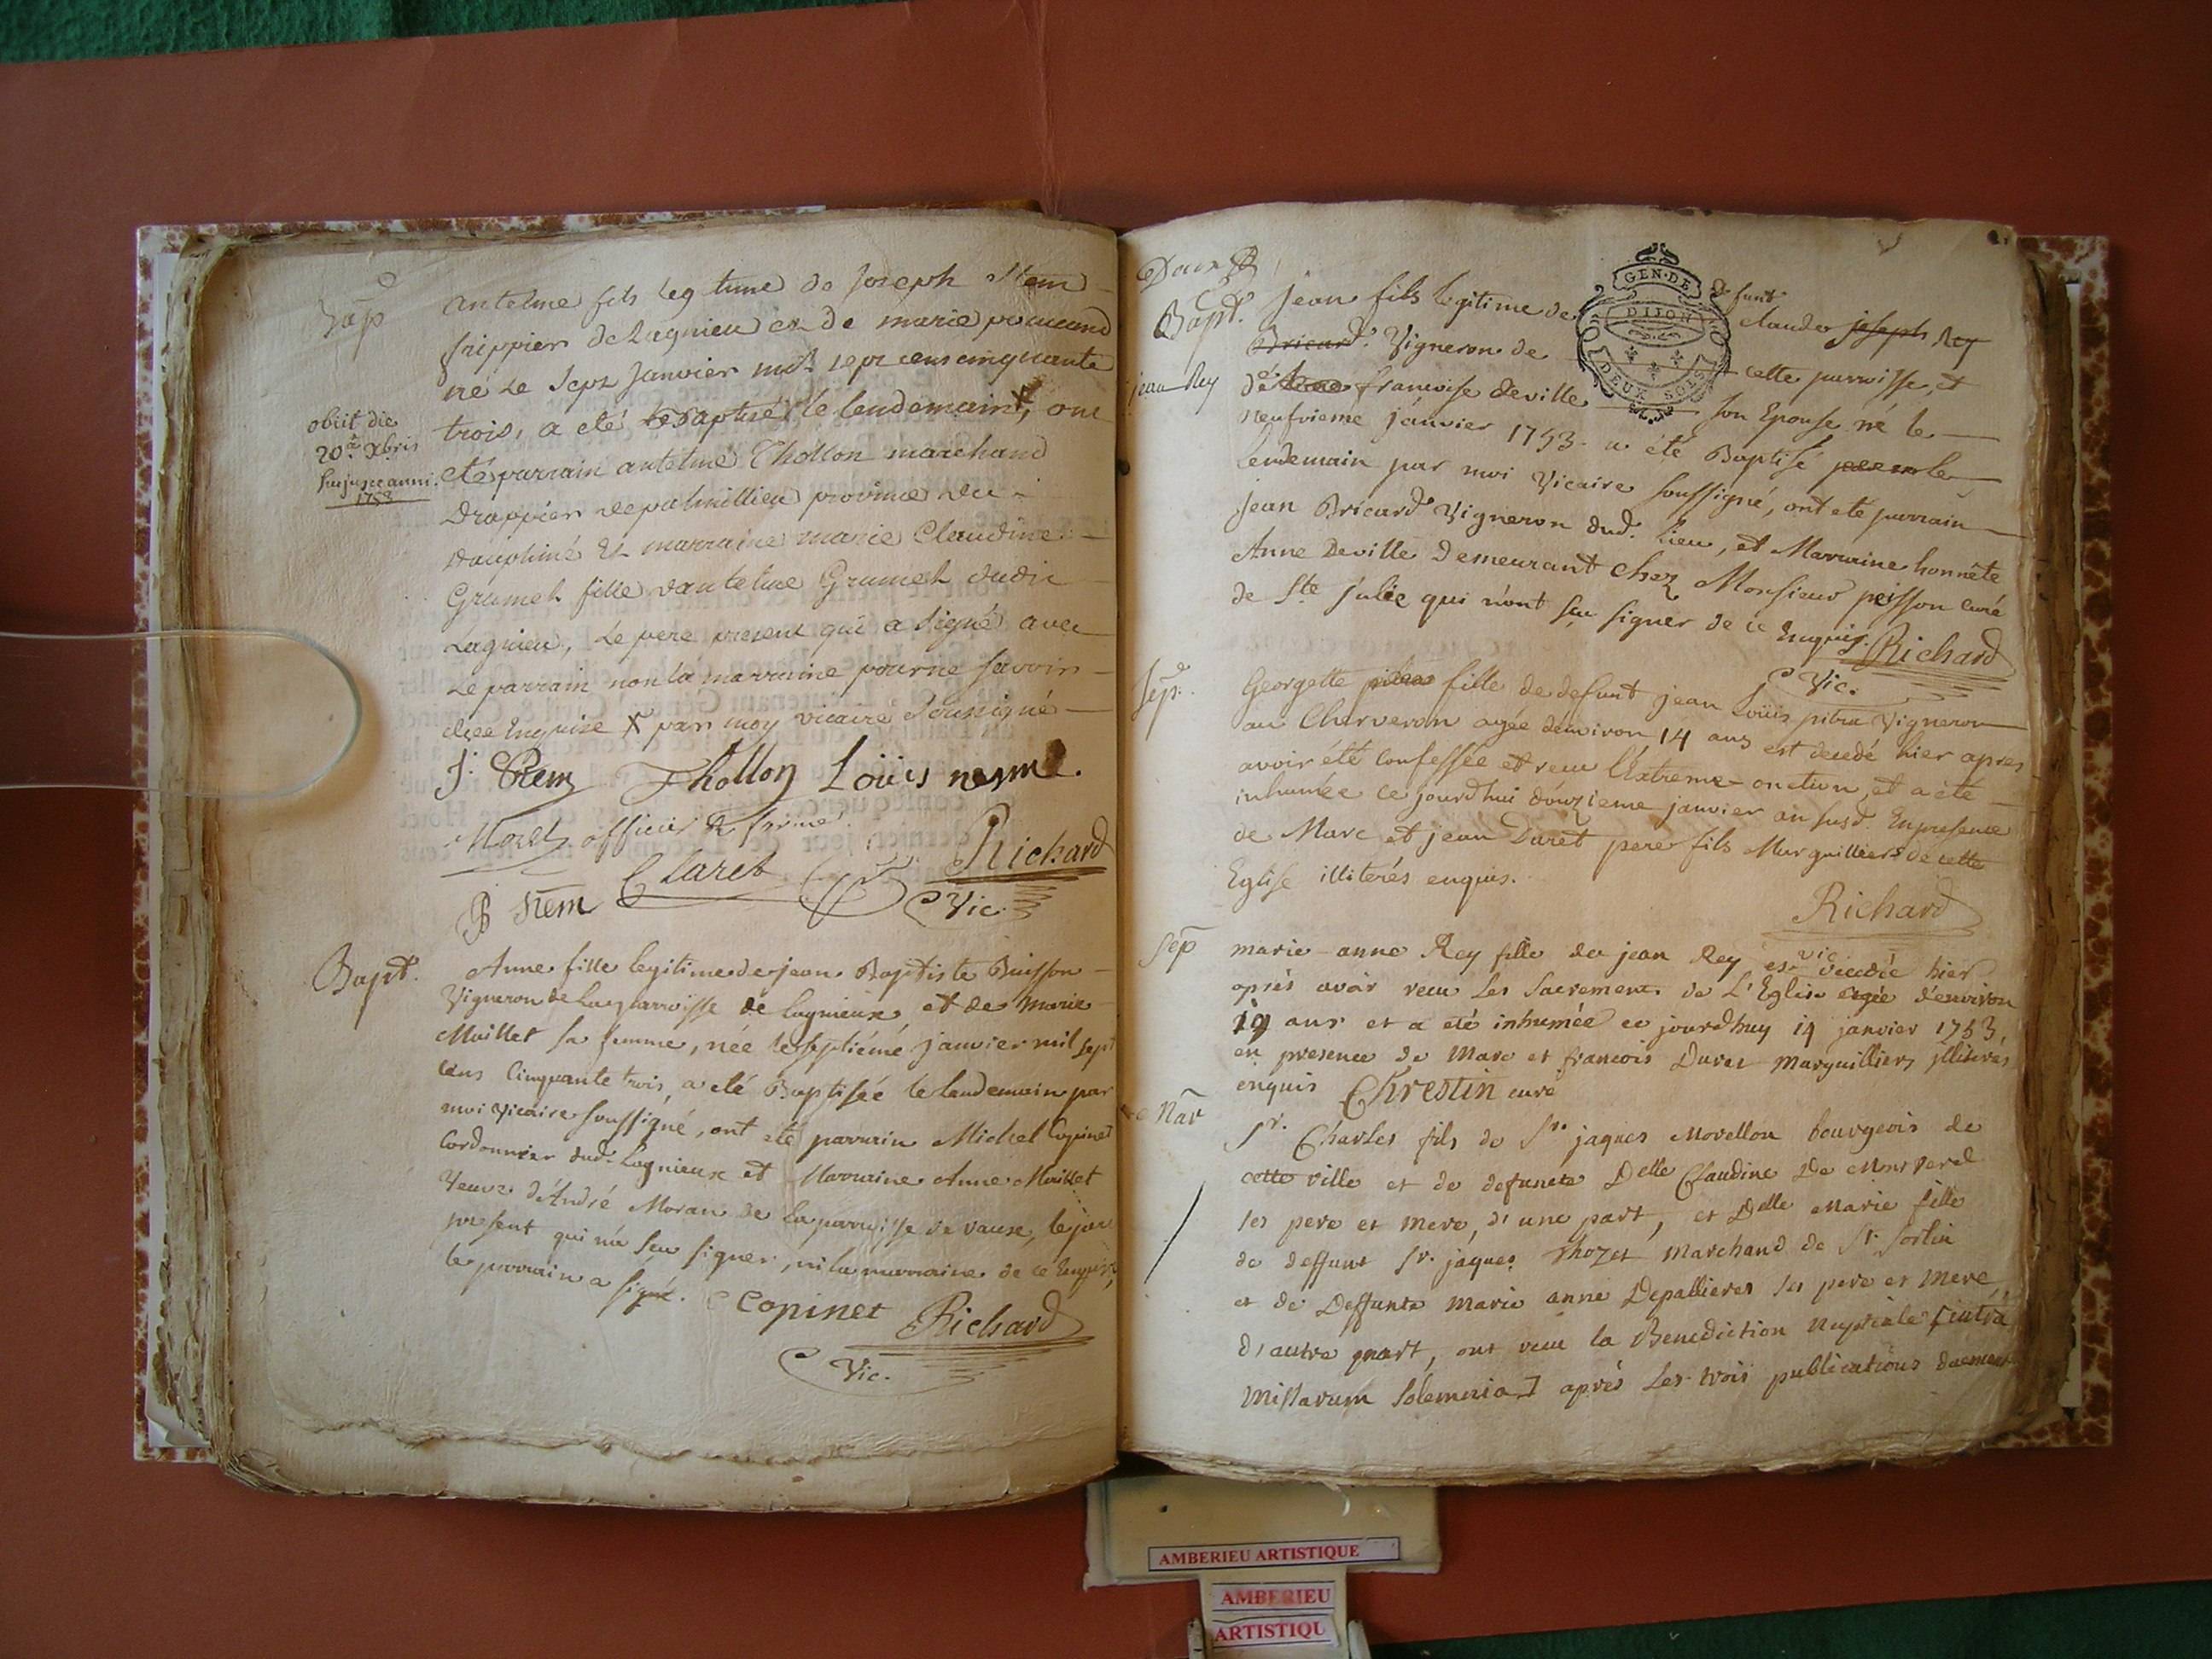 Bap
antelme fils legitime de Joseph Nem
frippier de Lagnieu et de marie
né le sept Janvier mil sept cens cinquante
trois, a eté baptisé le lendemain X, ont
obiit die
20a Xbris
hujusce anni.
1753
eté parrain antelme Thollon marchand
Drappier province du
dauphiné et marraine marie Claudine
Grumet fille dantelme Grumet dudit
Lagnieu, le pere present qui a signé avec
le parrain non la marraine pour ne savoir
de ce enquise X par moy vicaire soussigné
J. Nem Thollon Loüis nesme.
officier
Claret Richard
B Nem Vic.
Bapt.
Anne fille legitime de jean Baptiste Buisson
Vigneron de la parroisse de lagnieux et de Marie
Maillet sa femme, née le septiéme janvier mil sept
cens Cinquante trois, a eté Baptisée le lendemain par
moi vicaire soussigné, ont eté parrain Michel Copinet
Cordonnier dud. Lagnieux et Marraine Anne Maillet
Veuve d'André Moran de la parroisse de vaux, le pere
présent qui n'a sçu signer, ni la marraine de ce Enquis,
le parrain a signé. Copinet Richard
Vic.
Deux
Bapt.
GEN. DE
DIJON
DEUX SOLS
defunt
Jean fils legitime de claude joseph Rey
Bricard. Vigneron de cette parroisse, et
jean Rey
de francoise deville son Epouse né le
neufvieme janvier 1753. a été Baptisé le
lendemain par moi Vicaire soussigné, ont eté parrain
jean Bricard Vigneron dud. lieu, et Marraine honnête
Anne Deville Demeurant chez Monsieur peisson curé
de Ste julie qui n'ont sçu signer de ce Enquis. Richard
Vic.
Sep.
Georgette fille de defunt jean Loüis pitra Vigneron
au Cherveron agée d'environ 14 ans est decedé hier apres
avoir été confessée et recu l'Extreme-onction, et a été
inhumée ce jourd'hui douzieme janvier an susd. En presence
de Marc et jean Duret pere fils Marguilliers de cette
Eglise illiterés enquis.
Richard
vic
Sep
marie-anne Rey fille de jean Rey est decedée hier
aprés avoir recu les Sacremens de L'Eglise agée d'environ
19 ans et a eté inhumée ce jourdhuy 14 janvier 1753,
en presence de Marc et francois Duret Marguilliers jlliterés
enquis Chrestin curé
Nar
Sr. Charles fils de Sr. jaques Morellon bourgeois de
cette ville et de defuncte Delle Claudine De
ses pere et mere, d'une part, et Delle Marie fille
de deffunt Sr. jaques Thozet Marchand de St Sorlin
et de Deffunte Marie anne Depallieres ses pere et mere
d'autre part, ont recu la Benediction Nuptiale [intra
Missarum Solemnia] aprés Les trois publications duement
AMBERIEU ARTISTIQUE
AMBERIEU
ARTISTIQU